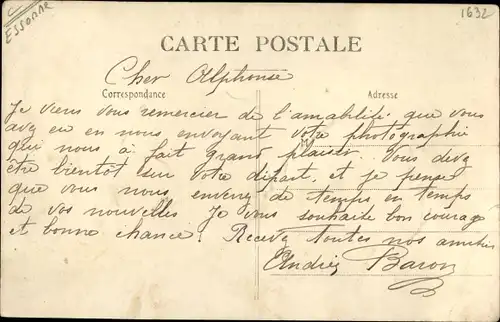 Essonne
1632
CARTE POSTALE
Cher Alphonse
Correspondance
Adresse
Je viens vous remercier de l'amabilité que vous
avez eu en nous envoyant votre photographie
M
qui nous à fait grand plaisir. Vous devez
être bientôt sur votre départ, et je pense
que vous nous enverez de temps en temps
de vos nouvelles je vous souhaite bon courage
et bonne chance. Recevez toutes nos amitiés
Baron